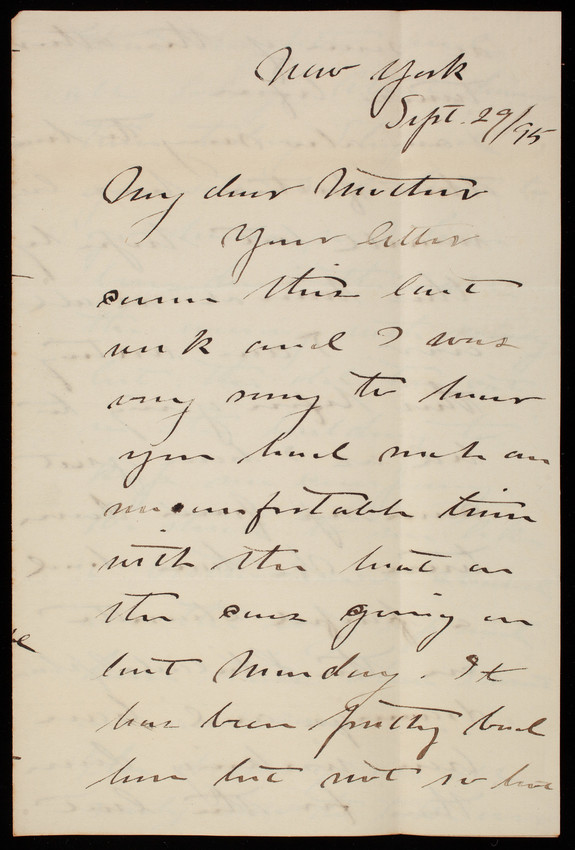 New York
Sept. 29/95
My dear Mother
Your letter
came this last
week and I was
very sorry to hear
you had such an
uncomfortable time
with the heat on
the cars going on
last Monday. It
has been pretty bad
here but not so hot